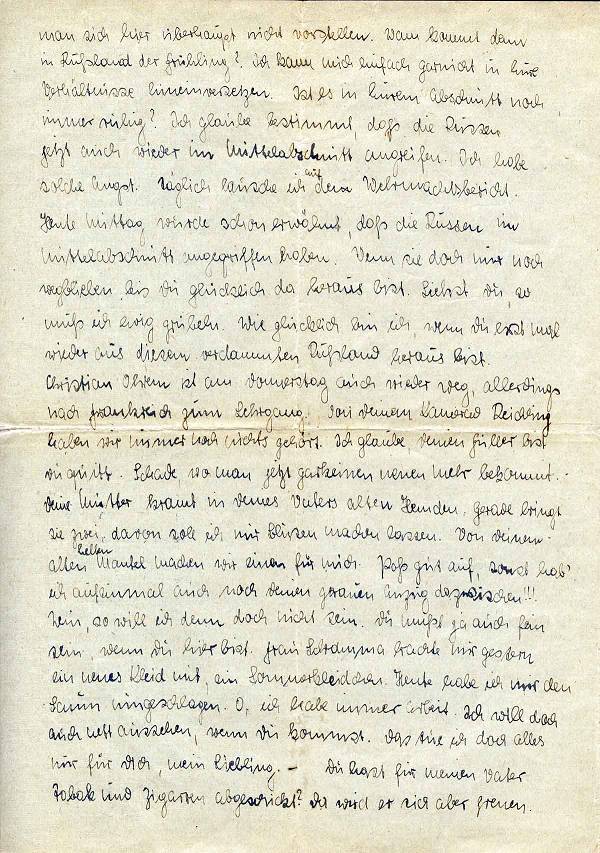 man sich hier überhaupt nicht vorstellen. Wann kommt denn
in Rußland der Frühling? Ich kann mich einfach garnicht in Eure
Verhältnisse hineinversetzen. Ist es in Eurem Abschnitt noch
immer ruhig? Ich glaube bestimmt, daß die Russen
jetzt auch wieder im Mittelabschnitt angreifen. Ich habe
solche Angst. Täglich lausche ich auf dem Wehrmachtsbericht.
Heute Mittag, wurde schon erwähnt, daß die Russen im
Mittelabschnitt angegriffen haben. Wenn sie doch nur noch
wegblieben, bis Du glücklich da heraus bist. Siehst Du, so
muß ich ewig grübeln. Wie glücklich bin ich, wenn Du erst mal
wieder aus diesem verdammten Rußland heraus bist.
Christian Ohrem ist am Donnerstag auch wieder weg, allerdings
nach Frankreich zum Lehrgang. Von Deinem Kamerad
haben wir immer noch nichts gehört. Ich glaube, Deinen Füller bist
Du quitt. Schade, wo man jetzt garkeinen neuen mehr bekommt.
Deine Mutter kramt in Deines Vaters alten Hemden, gerade bringt
sie zwei, davon soll ich mir Blusen machen lassen. Von Deinem
alten hellen Mantel machen wir einen für mich. Paß gut auf, sonst hab'
ich aufeinmal auch noch Deinen grauen Anzug dazwischen!!!
Nein, so will ich denn doch nicht sein. Du mußt ja auch fein
sein, wenn Du hier bist. Frau brachte mir gestern
ein neues Kleid mit, ein Sommerkleidchen. Heute habe ich mir den
Saum umgeschlagen. O, ich habe immer Arbeit. Ich will doch
auch nett aussehen, wenn Du kommst. Das tue ich doch alles
nur für Dich, mein Liebling. – Du hast für meinen Vater
Tabak und Zigarren abgeschickt? Da wird er sich aber freuen.